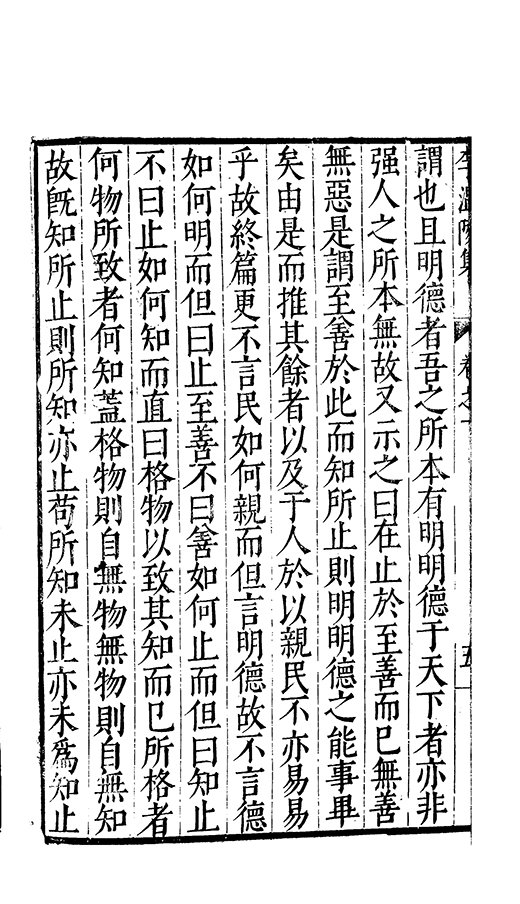 李溫陵集 卷之一 五
謂也且明德者吾之所本有明明德于天下者亦非
强人之所本無故又示之曰在止於至善而已無善
無惡是謂至善於此而知所止則明明德之能事畢
矣由是而推其餘者以及于人於以親民不亦易易
乎故終篇更不言民如何親而但言明德故不言德
如何明而但曰止至善不曰善如何止而但曰知止
不曰止如何知而直曰格物以致其知而已所格者
何物所致者何知蓋格物則自無物無物則自無知
故旣知所止則所知亦止苟所知未止亦未爲知止